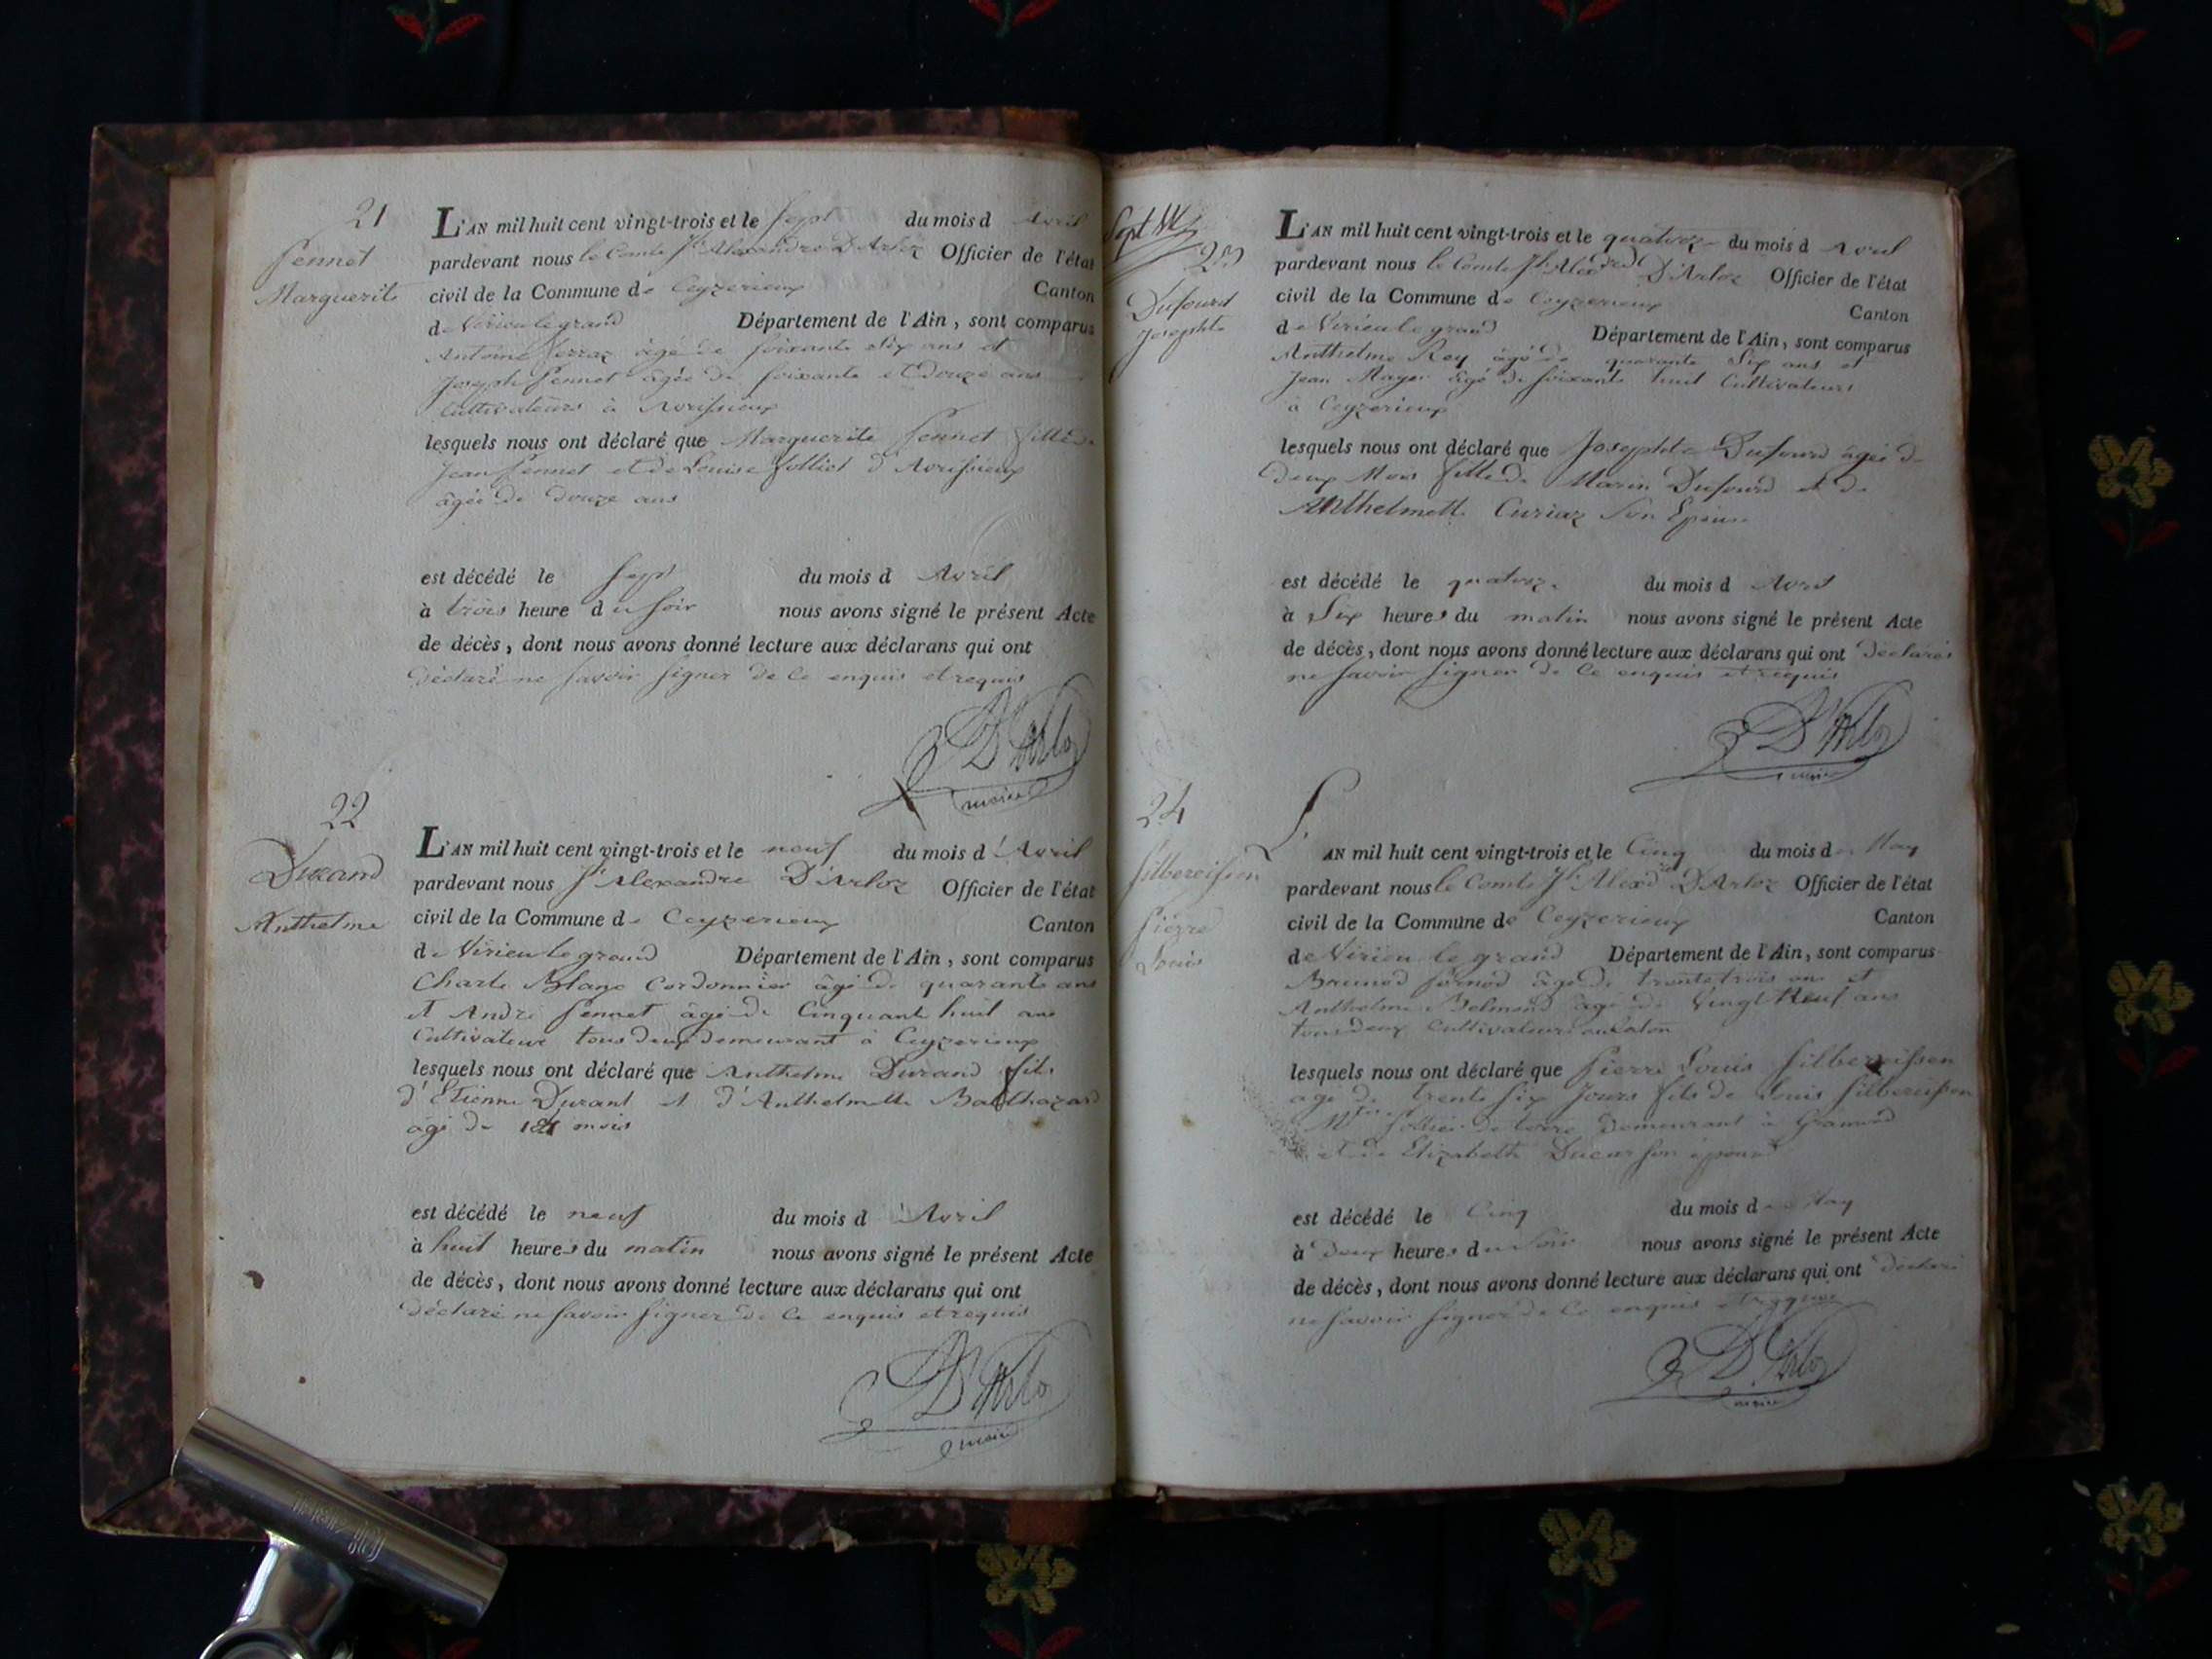 21
Pennet
Marguerite
L'AN mil huit cent vingt-trois et le sept du mois d avril
pardevant nous le Comte Jh Alexandre D'Arloz Officier de l'état
civil de la Commune de Ceyzerieux Canton
de Virieu le grand Département de l'Ain, sont comparus
Antoine Perraz âgé de soixante six ans et
Joseph Pennet âgée de soixante et douze ans
Cultivateurs à Avrissieux
lesquels nous ont déclaré que Marguerite Pennet fille de
Jean Pennet et de Louise Jolliet d'Avrissieux
âgée de douze ans
est décédé le sept du mois d Avril
à trois heure du soir nous avons signé le présent Acte
de décès, dont nous avons donné lecture aux déclarans qui ont
déclaré ne savoir signer de ce enquis et requis
D'Arloz
maire
22
Durand
Anthelme
L'AN mil huit cent vingt-trois et le neuf du mois d'Avril
pardevant nous Jh Alexandre D'Arloz Officier de l'état
civil de la Commune de Ceyzerieux Canton
de Virieu le grand Département de l'Ain, sont comparus
Charle Blanc Cordonnier âgé de quarante ans
et André Pennet âgé de Cinquante huit ans
Cultivateur tous deux demeurant à Ceyzerieux
lesquels nous ont déclaré que Anthelme Durand fils
d'Etienne Durant et d'Anthelmette Balthazard
âgé de mois
est décédé le neuf du mois d'Avril
à huit heures du matin nous avons signé le présent Acte
de décès, dont nous avons donné lecture aux déclarans qui ont
déclaré ne savoir signer de ce enquis et requis
D'Arloz
maire
23
Dufourd
Josephte
L'AN mil huit cent vingt-trois et le quatorze du mois d Avril
pardevant nous le Comte Jh Alexdre D'Arloz Officier de l'état
civil de la Commune de Ceyzerieux
Canton
de Virieu le grand Département de l'Ain, sont comparus
Anthelme Rey âgé de quarante Six ans et
Jean Mayer âgé de soixante huit Cultivateurs
à Ceyzerieux
lesquels nous ont déclaré que Josephte Dufourd âgée de
deux Mois fille de Marin Dufourd et de
Anthelmette Curiaz Son Epouse
est décédé le quatorze du mois d Avril
à Six heures du matin nous avons signé le présent Acte
de décès, dont nous avons donné lecture aux déclarans qui ont déclarés
ne savoir signer de ce enquis et requis
D'Arloz
maire
24
Silbereissen
Pierre
Louis
L'AN mil huit cent vingt-trois et le Cinq du mois de May
pardevant nous le Comte Jh Alexdre D'Arloz Officier de l'état
civil de la Commune de Ceyzerieux Canton
de Virieu le grand Département de l'Ain, sont comparus
âgé de trente trois ans et
Anthelme Belmond âgé de Vingt Neuf ans
tous deux Cultivateurs
lesquels nous ont déclaré que Pierre Louis Silbereissen
âgé de trente Six Jours fils de Louis Silbereissen
de terre demeurant à
et de Elizabeth son épouse
est décédé le Cinq du mois de May
à Deux heures du Soir nous avons signé le présent Acte
de décès, dont nous avons donné lecture aux déclarans qui ont déclaré
ne savoir signer de ce enquis et requis
D'Arloz
maire